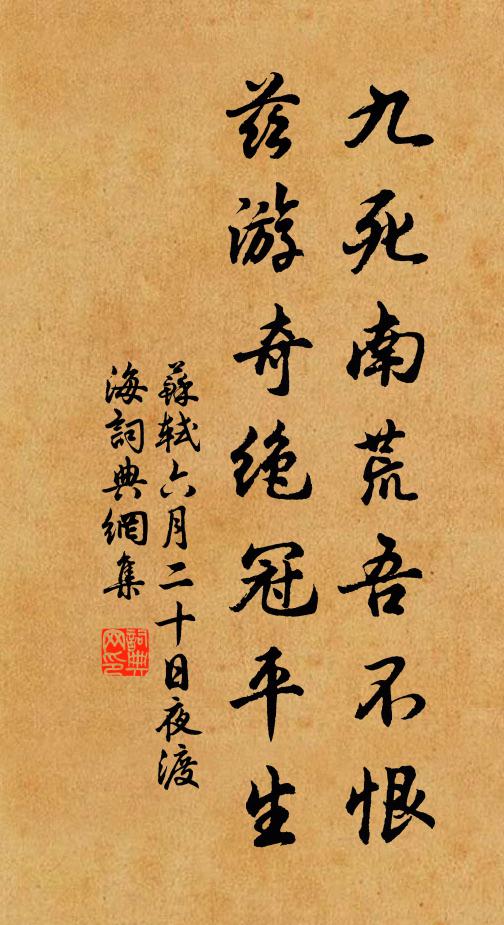 九死南荒吾不恨
茲游奇絶冠平生
蘇軾六月二十日夜渡
海詞典網集
詞典网印